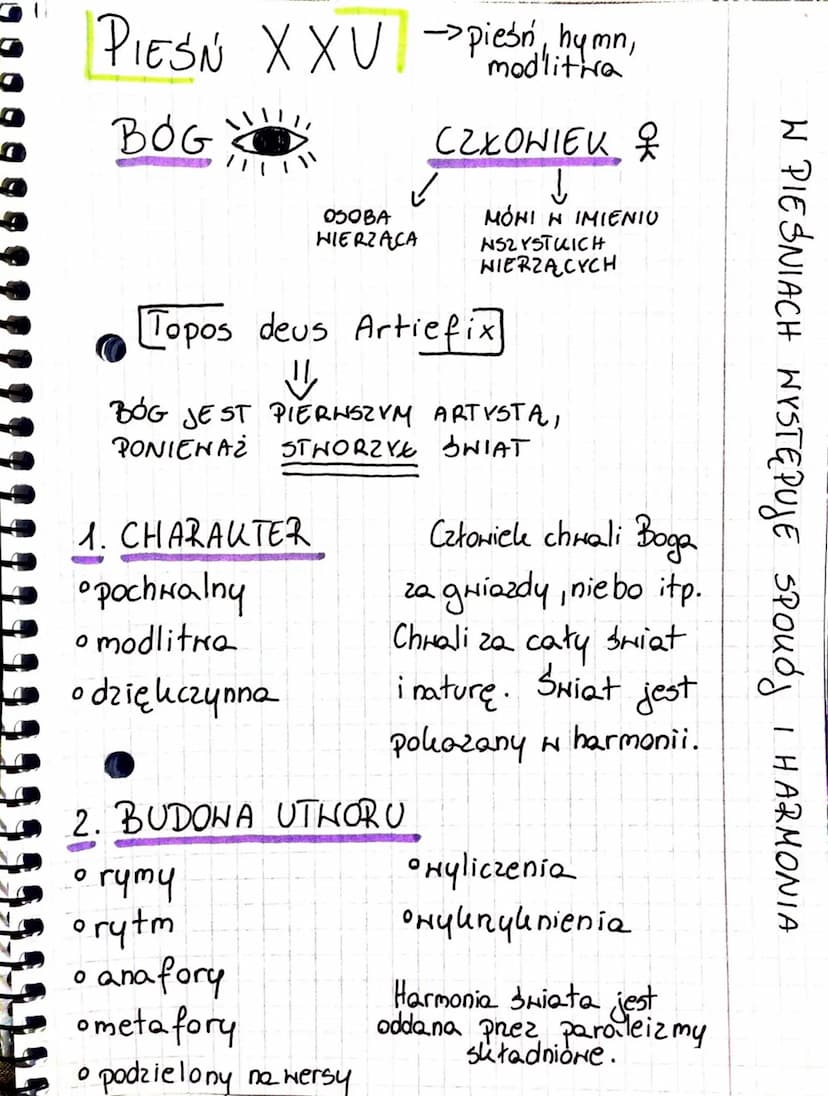 PIEŚŃ XXV → pieśń, hymn,
modlitwa
BÓG CZŁOWIEK
OSOBA
WIERZĄCA
MÓWI W IMIENIU
WSZYSTKICH
WIERZĄCYCH
Topos deus Artiefix
BÓG JEST PIERWSZYM ARTYSTĄ,
PONIEWAŻ STWORZYŁ ŚWIAT
1. CHARAKTER
° pochwalny
° modlitwa
° dziękczynna
Człowiek chwali Boga
za gwiazdy, niebo itp.
Chwali za cały świat
i naturę. Świat jest
pokazany w harmonii.
2. BUDOWA UTWORU
° rymy
° rytm
° anafory
° metafory
° podzielony na wersy
° wyliczenia
° wykrzyknienia
Harmonia świata jest
oddana przez paraleizmy
składniowe.
W PIEŚNIACH WYSTĘPUJE SPOKÓJ I HARMONIA